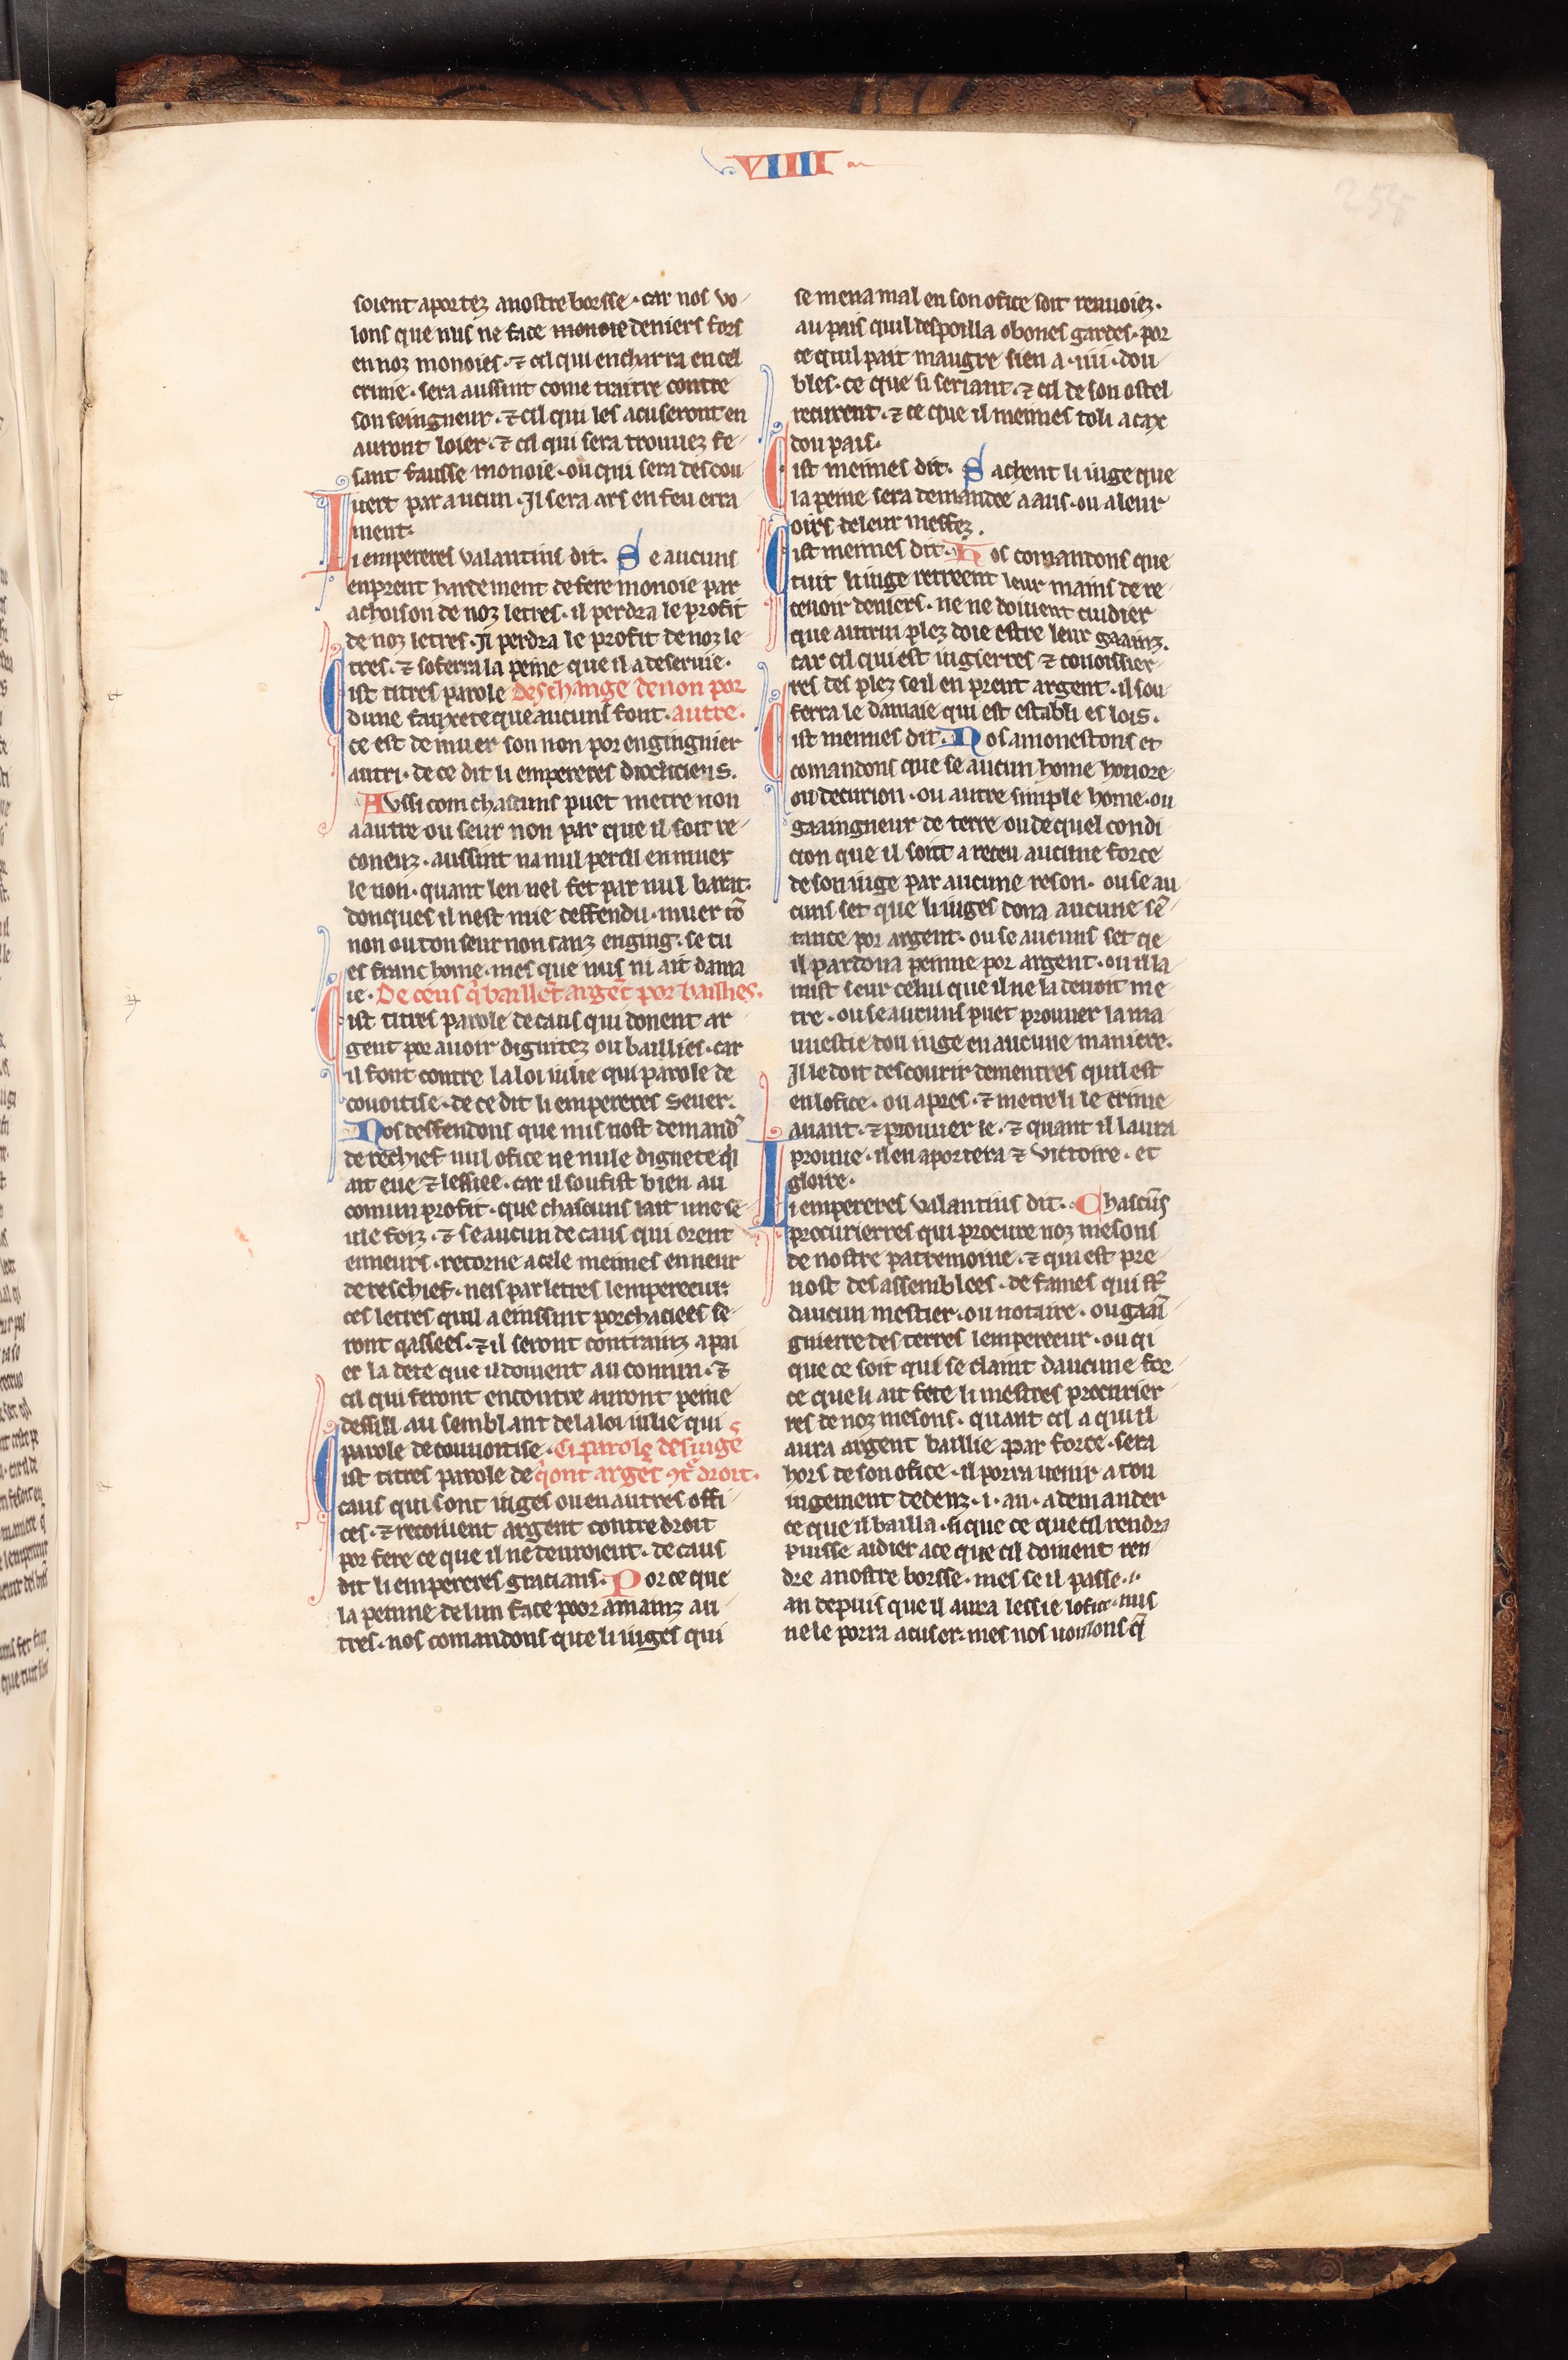 VIIII
258
soient aportez anostre borsse. car nos vo
lons que nus ne face monoie deniers fors
en noz monoies. ⁊ cil qui encharra en cel
crime. sera aussint come traitre contre
son seingneur. ⁊ cil qui les acuseront en
auront loier. ⁊ cil qui sera trouuez fe
sant fausse monoie. ou qui sera descou
uert par aucun. Il sera ars en feu erra
ment.
Li empereres valantins dit. Se aucuns
enprent hardement de fere monoie par
achoison de noz letres. il perdra le profit
de noz letres. Il perdra le profit de noz le
tres. ⁊ soferra la peine que il a deseruie.
Cist titres parole Deschange de non por
dune fauxete que aucuns font. autre.
ce est de muer son non por enginguier
autri. de ce dit li empereres diocliciens.
Aussi com chascuns puet metre non
a autre ou seur non par que il soit re
coneuz. aussint na nul peril en muer
le non. quant len nel fet par nul barat.
donques il nest mie deffendu. muer tō
non ou ton seur non sanz enging. se tu
es franc home. mes que nus ni ait dama
ie. De ceus q̄ baillēt argēt por baillies.
Cist titres parole de caus qui donent ar
gent por auoir dignitez ou baillies. car
il font contre la loi iulie qui parole de
couoitise. de ce dit li empereres Seuer.
Nos deffendons que nus nost demand̾
de rechief nul ofice ne nule dignete q̄l
ait eue ⁊ lessiee. car il soufist bien au
comun profit. que chascuns lait une se
ule foiz. ⁊ se aucun de caus qui orent
enneurs. retorne a cele meimes enneur
de reschief. neis par letres lempereeur
ces letres quil a emissint porchaciees se
ront qassees. ⁊ il seront contrainz a pai
er la dete que il doiuent au comun. ⁊
cil qui feront encontre auront peine
dessill au semblant de la loi iulie qui
parole de couuoitise. Ci parole des iuges
Cist titres parole de q̄ ont argēt ꝯt̾ droit.
caus qui sont iuges ou en autres offi
ces. ⁊ recoiuent argent contre droit
por fere ce que il ne deuroient. de caus
dit li empereres gracians. Por ce que
la penne de lun face poor a mainz au
tres. nos comandons que li iuges qui
se mena mal en son ofice soit renuoiez.
au pais quil despoilla o bones gardes. por
ce quil pait maugre sien a .iiii. dou
bles. ce que si seriant. ⁊ cil de son ostel
recurent. ⁊ ce que il meimes toli a cax
dou pais.
Cist meimes dit. Sachent li iuge que
la peine sera demandee a aus. ou a leur
oirs de leur meffez.
Cist meimes dit. Nos comandons que
tuit li iuge retreent leur mains de re
cenoir deniers. ne ne doiuent cuidier
que autrui plez doie estre leur gaainz.
car cil qui est iugierres ⁊ conoissier
res des plez se il en prent argent. il sou
ferra le damaie qui est establi es lois.
Cist meimes dit. Nos amonestons et
comandons que se aucun home honore
ou decurion. ou autre simple home. ou
gaaingneur de terre ou de quel condi
cion que il soit a receu aucune force
de son iuge par aucune reson. ou se au
cuns set que li iuges dona aucune sē
tance por argent. ou se aucuns set qe
il pardona peinne por argent. ou il la
mist seur celui que il ne la deuoit me
tre. ou se aucuns puet prouuer la ma
uuestie dou iuge en aucune maniere.
Il le doit descourir dementres quil est
en lofice. ou apres. ⁊ metre li le crime
auant. ⁊ prouuer le. ⁊ quant il laura
prouue. il en aportera ⁊ victoire. et
gloire.
Li empereres valantins dit. Chascūs
procurierres qui procure noz mesons
de nostre patremoine. ⁊ qui est pre
uost des assemblees. de fames qui st̄
daucun mestier. ou notaire. ou gaaī
gnierre des terres lempereeur. ou qi
que ce soit qui se claint daucune for
ce que li ait fete li mestres procurier
res de noz mesons. quant cil a qui il
aura argent baillie par force. sera
hors de son ofice. il porra uenir a ton
iugement dedenz .i. an. a demander
ce que il bailla. si que ce que cil rendra
puisse aidier a ce que cil doiuent ren
dre a nostre borsse. mes se il passe .i.
an depuis que il aura lessie lofice. nus
ne le porra acuser. mes nos uoulons q̄